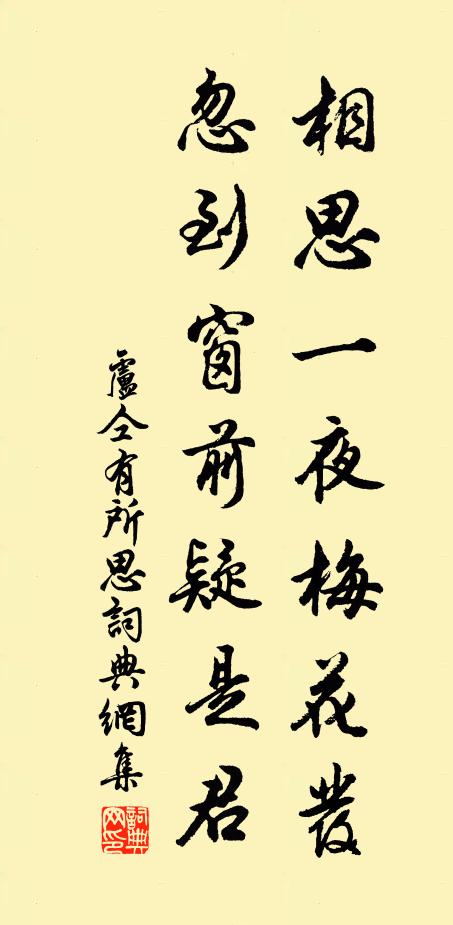 相思一夜梅花發
忽到窗前疑是君
盧仝有所思詞典網集
詞典網印